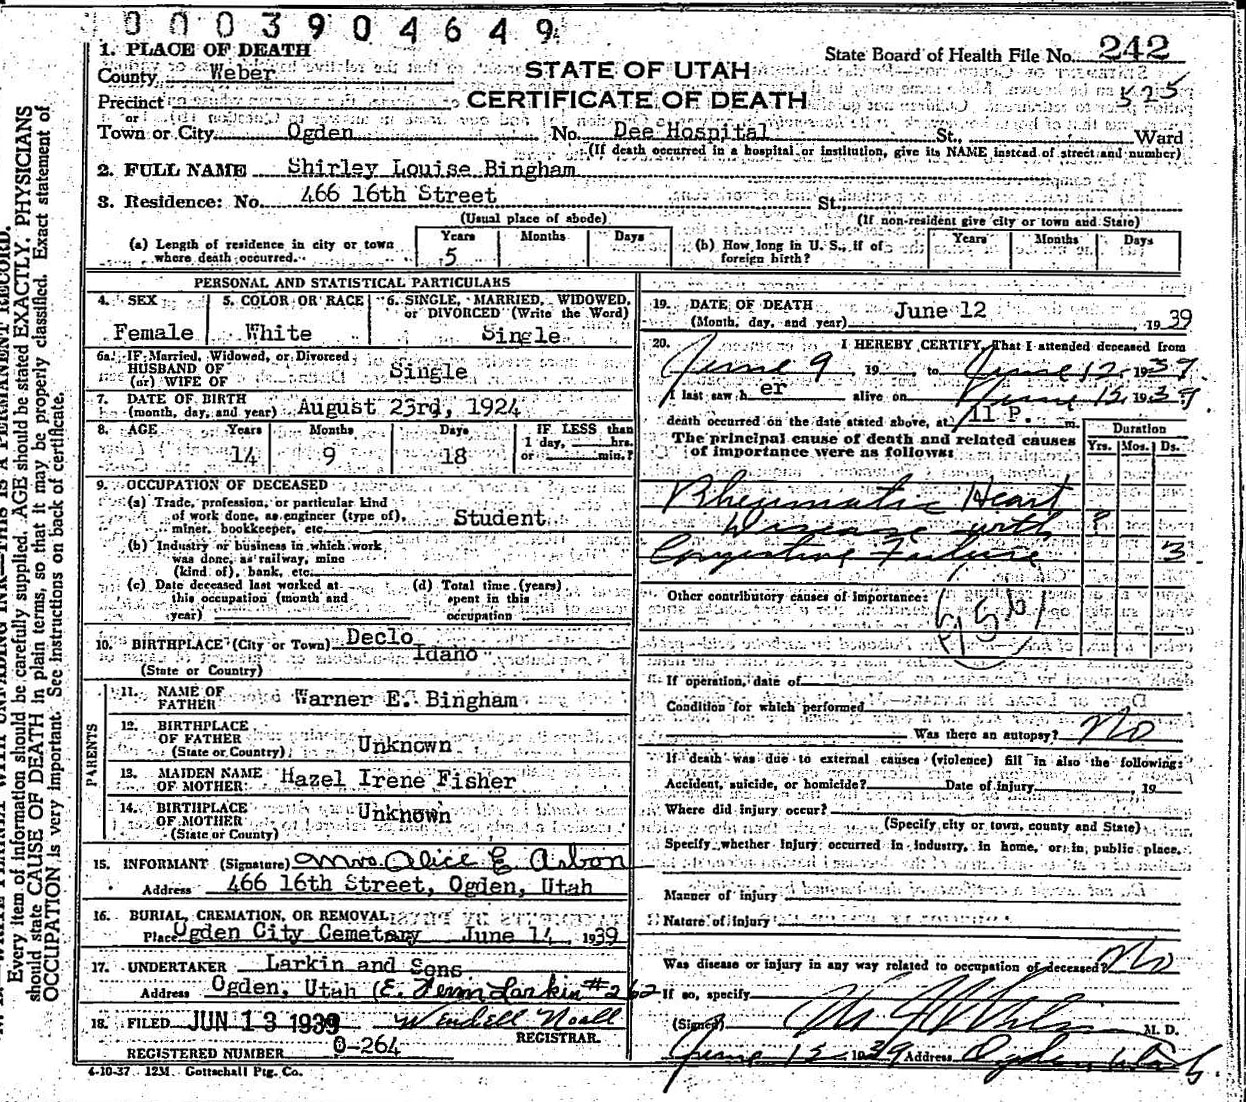 0003904649
1. PLACE OF DEATH
State Board of Health File No. 242
County Weber
STATE OF UTAH
525
Precinct
CERTIFICATE OF DEATH
or
Town or City Ogden No. Dee Hospital St., Ward
(If death occurred in a hospital or institution, give its NAME instead of street and number)
2. FULL NAME Shirley Louise Bingham
3. Residence: No. 466 16th Street St.
(Usual place of abode) (If non-resident give city or town and State)
(a) Length of residence in city or town where death occurred. Years 5 Months Days
(b) How long in U. S., if of foreign birth? Years Months Days
PERSONAL AND STATISTICAL PARTICULARS
4. SEX Female
5. COLOR OR RACE White
6. SINGLE, MARRIED, WIDOWED, or DIVORCED (Write the Word) Single
6a. IF Married, Widowed, or Divorced
HUSBAND OF
(or) WIFE OF Single
7. DATE OF BIRTH
(month, day, and year) August 23rd, 1924
8. AGE Years 14 Months 9 Days 18 IF LESS than 1 day, hrs. or min.?
9. OCCUPATION OF DECEASED
(a) Trade, profession, or particular kind
of work done, as engineer (type of),
miner, bookkeeper, etc. Student
(b) Industry or business in which work
was done, as railway, mine
(kind of), bank, etc.
(c) Date deceased last worked at
this occupation (month and
year)
(d) Total time (years)
spent in this
occupation
10. BIRTHPLACE (City or Town) Declo
Idaho
(State or Country)
PARENTS
11. NAME OF
FATHER Warner E. Bingham
12. BIRTHPLACE
OF FATHER
(State or Country) Unknown
13. MAIDEN NAME
OF MOTHER Hazel Irene Fisher
14. BIRTHPLACE
OF MOTHER Unknown
(State or Country)
15. INFORMANT (Signature) Mrs. Alice E Arbon
Address 466 16th Street, Ogden, Utah
16. BURIAL, CREMATION, OR REMOVAL
Place Ogden City Cemetary June 14 1939
17. UNDERTAKER Larkin and Sons
Address Ogden, Utah (E. Fenn Larkin #262
18. FILED JUN 13 1939 Wendell Noall
REGISTRAR.
REGISTERED NUMBER 0-264
4-10-37 12M Gottschall Ptg. Co.
19. DATE OF DEATH
(Month, day, and year) June 12, 1939
20. I HEREBY CERTIFY, That I attended deceased from
June 9, 19 to June 12, 1939
I last saw her alive on June 12, 1939
death occurred on the date stated above, at 11 P. m.
The principal cause of death and related causes
of importance were as follows:
Duration
Yrs. Mos. Ds.
Rheumatic Heart
Disease with ?
Congestive Failure 3
Other contributory causes of importance:
95b
If operation, date of
Condition for which performed
Was there an autopsy? No
If death was due to external causes (violence) fill in also the following:
Accident, suicide, or homicide? Date of injury , 19
Where did injury occur?
(Specify city or town, county and State)
Specify whether Injury occurred in industry, in home, or in public place.
Manner of injury
Nature of injury
Was disease or injury in any way related to occupation of deceased? No
If so, specify
(Signed) M. D.
June 12 1939 Address Ogden Utah.
Every item of information should be carefully supplied. AGE should be stated EXACTLY. PHYSICIANS
should state CAUSE OF DEATH in plain terms, so that it may be properly classified. Exact statement of
OCCUPATION is very important. See instructions on back of certificate.